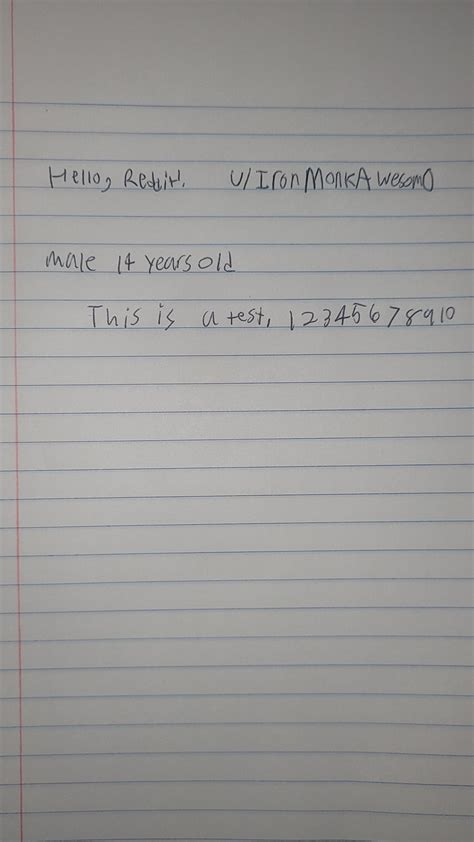 Hello, Reddit!. u/IronMonkAwesomO
male 14 years old
This is a test, 12345678910